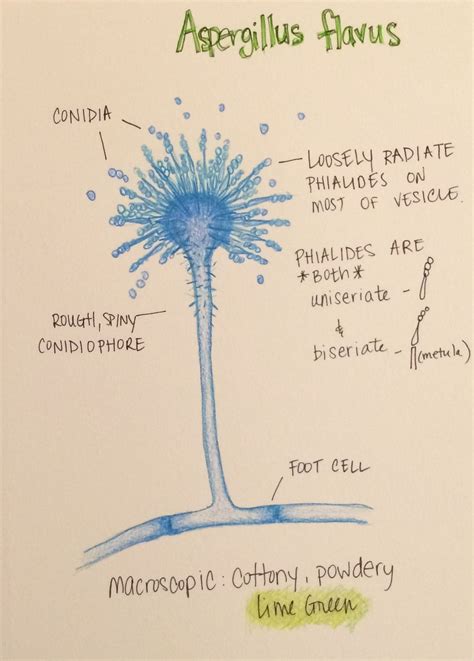 Aspergillus flavus
CONIDIA
LOOSELY RADIATE
PHIALIDES ON
MOST OF VESICLE.
PHIALIDES ARE
*BOTH*
uniseriate -
&
biseriate - (metula)
ROUGH, SPINY
CONIDIOPHORE
FOOT CELL
macroscopic: cottony, powdery
lime Green